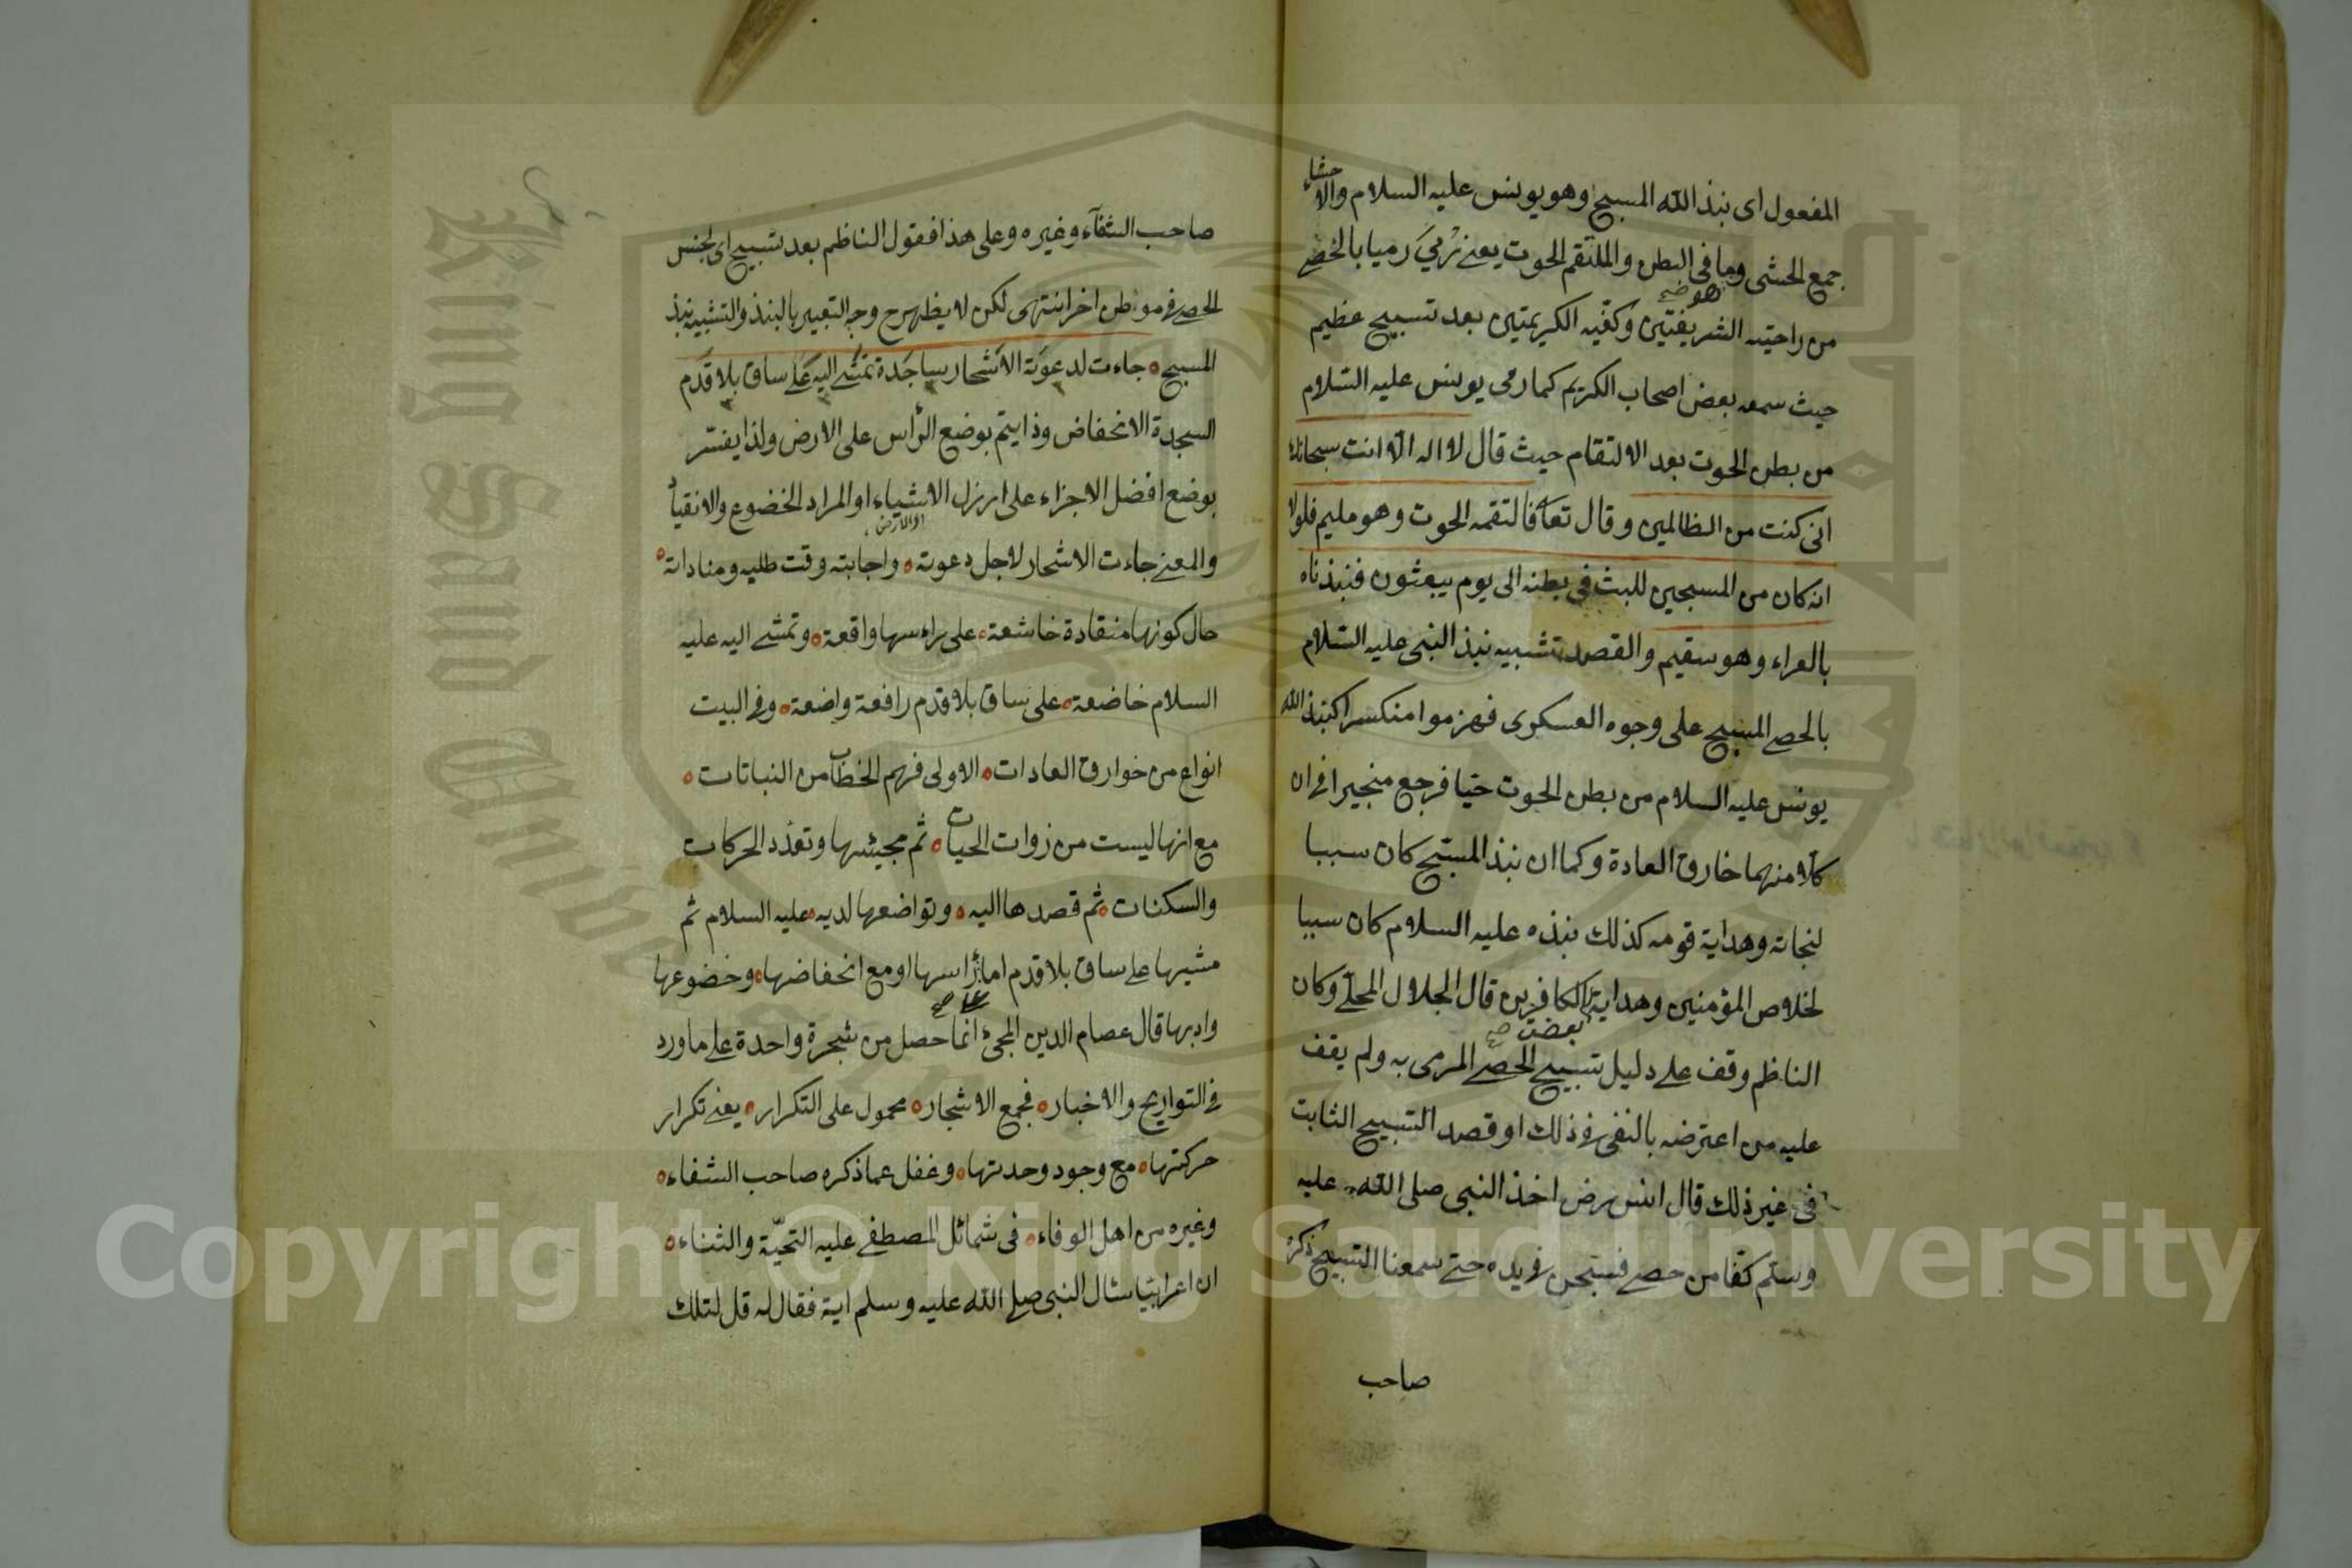 المفعول اى نبذ الله المسبح وهو يونس عليه السلام والاحشاء
جمع الحشى وما فى البطن والملتقم الحوت يعنے رُمِيَ رميا بالحصے
هو صح
من راحتيه الشريفتين وكفّيه الكريمتين بعد تسبيح عظيم
حيث سمعه بعض اصحاب الكريم كما رمى يونس عليه السّلام
من بطن الحوت بعد الالتقام حيث قال لا اله الّا انت سبحانك
انى كنت من الظالمين وقال تعا فالتقمه الحوت وهو مليم فلولا
انه كان من المسبحين للبث فى بطنه الى يوم يبعثون فنبذناه
بالعراء وهو سقيم والقصد تشبيه نبذ النبى عليه السّلام
بالحصے المسبح على وجوه العسكرى فهزموا منكسرا كنبذ الله
يونس عليه السلام من بطن الحوت حيّا فرجع منجيرا فے ان
كلّا منهما خارق العادة وكما ان نبذ المسبّح كان سببا
لنجاته وهداية قومه كذلك نبذه عليه السلام كان سببا
لخلاص المؤمنين وهداية الكافرين قال الجلال المحلّے وكان
بعض صح
الناظم وقف علے دليل تسبيح الحصے المرمى به ولم يقف
عليه من اعترضه بالنفى فے ذلك او قصد التسبيح الثابت
فى غير ذلك قال انس رض اخذ النبى صلى الله عليه
وسلم كفّا من حصے فسبّحن فے يده حتے سمعنا التسبيح ذكره
صاحب
صاحب الشفآء وغيره وعلى هذا فقول الناظم بعد تسبيح اى لجنس
الحصے فے موطن اخر انتهى لكن لا يظهر ح وجه التعبير بالنبذ والتشبيه بنبذ
المسبح جاءت لدعوَته الاَشجار ساجَدة تمشے اليه عَلے ساق بلا قَدَم
السجدة الانخفاض وذا يتم بوضع الرأس على الارض ولذا يفسّر
بوضع افضل الاجزاء على ارزل الاشياء او المراد الخضوع والانقياد
او الارض
والمعنے جاءت الاشجار لاجل دعوته واجابته وقت طلبه ومناداته
حال كونها منقادة خاشعة على راءسها واقعة وتمشے اليه عليه
السلام خاضعة على ساق بلا قدم رافعة واضعة وفے البيت
انواع من خوارق العادات الاولى فهم الخطاب من النباتات
مع انها ليست من زوات الحيات ثم مجيئها وتعدّد الحركات
والسكنات ثم قصدها اليه وتواضعها لديه عليه السلام ثم
مشيها علے ساق بلا قدم اما راسها او مع انخفاضها وخضوعها
علے صح
وادبها قال عصام الدين المجئ انما حصل من شجرة واحدة علے ما ورد
فے التواريخ والاخبار فجمع الاشجار محمول على التكرار يعنے تكرار
حركتها مع وجود وحدتها وغفل عما ذكره صاحب الشفاء
وغيره من اهل الوفاء فى شمائل المصطفے عليه التحيّة والثناء
ان اعرابيّا سئال النبى صلے الله عليه وسلم اية فقال له قل لتلك
Copyright © King Saud University
King Saud University